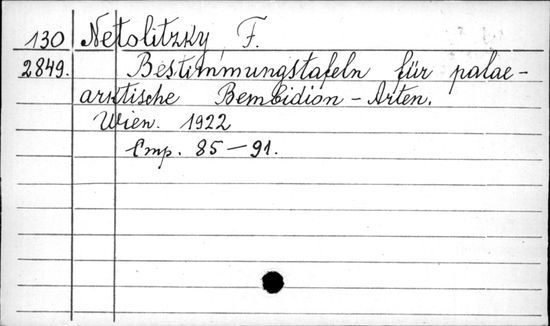 130 Netolitzky F.
2849. Bestimmungstafeln für palae-
arktische Bembidion-Arten.
Wien. 1922
Стр. 85-91.